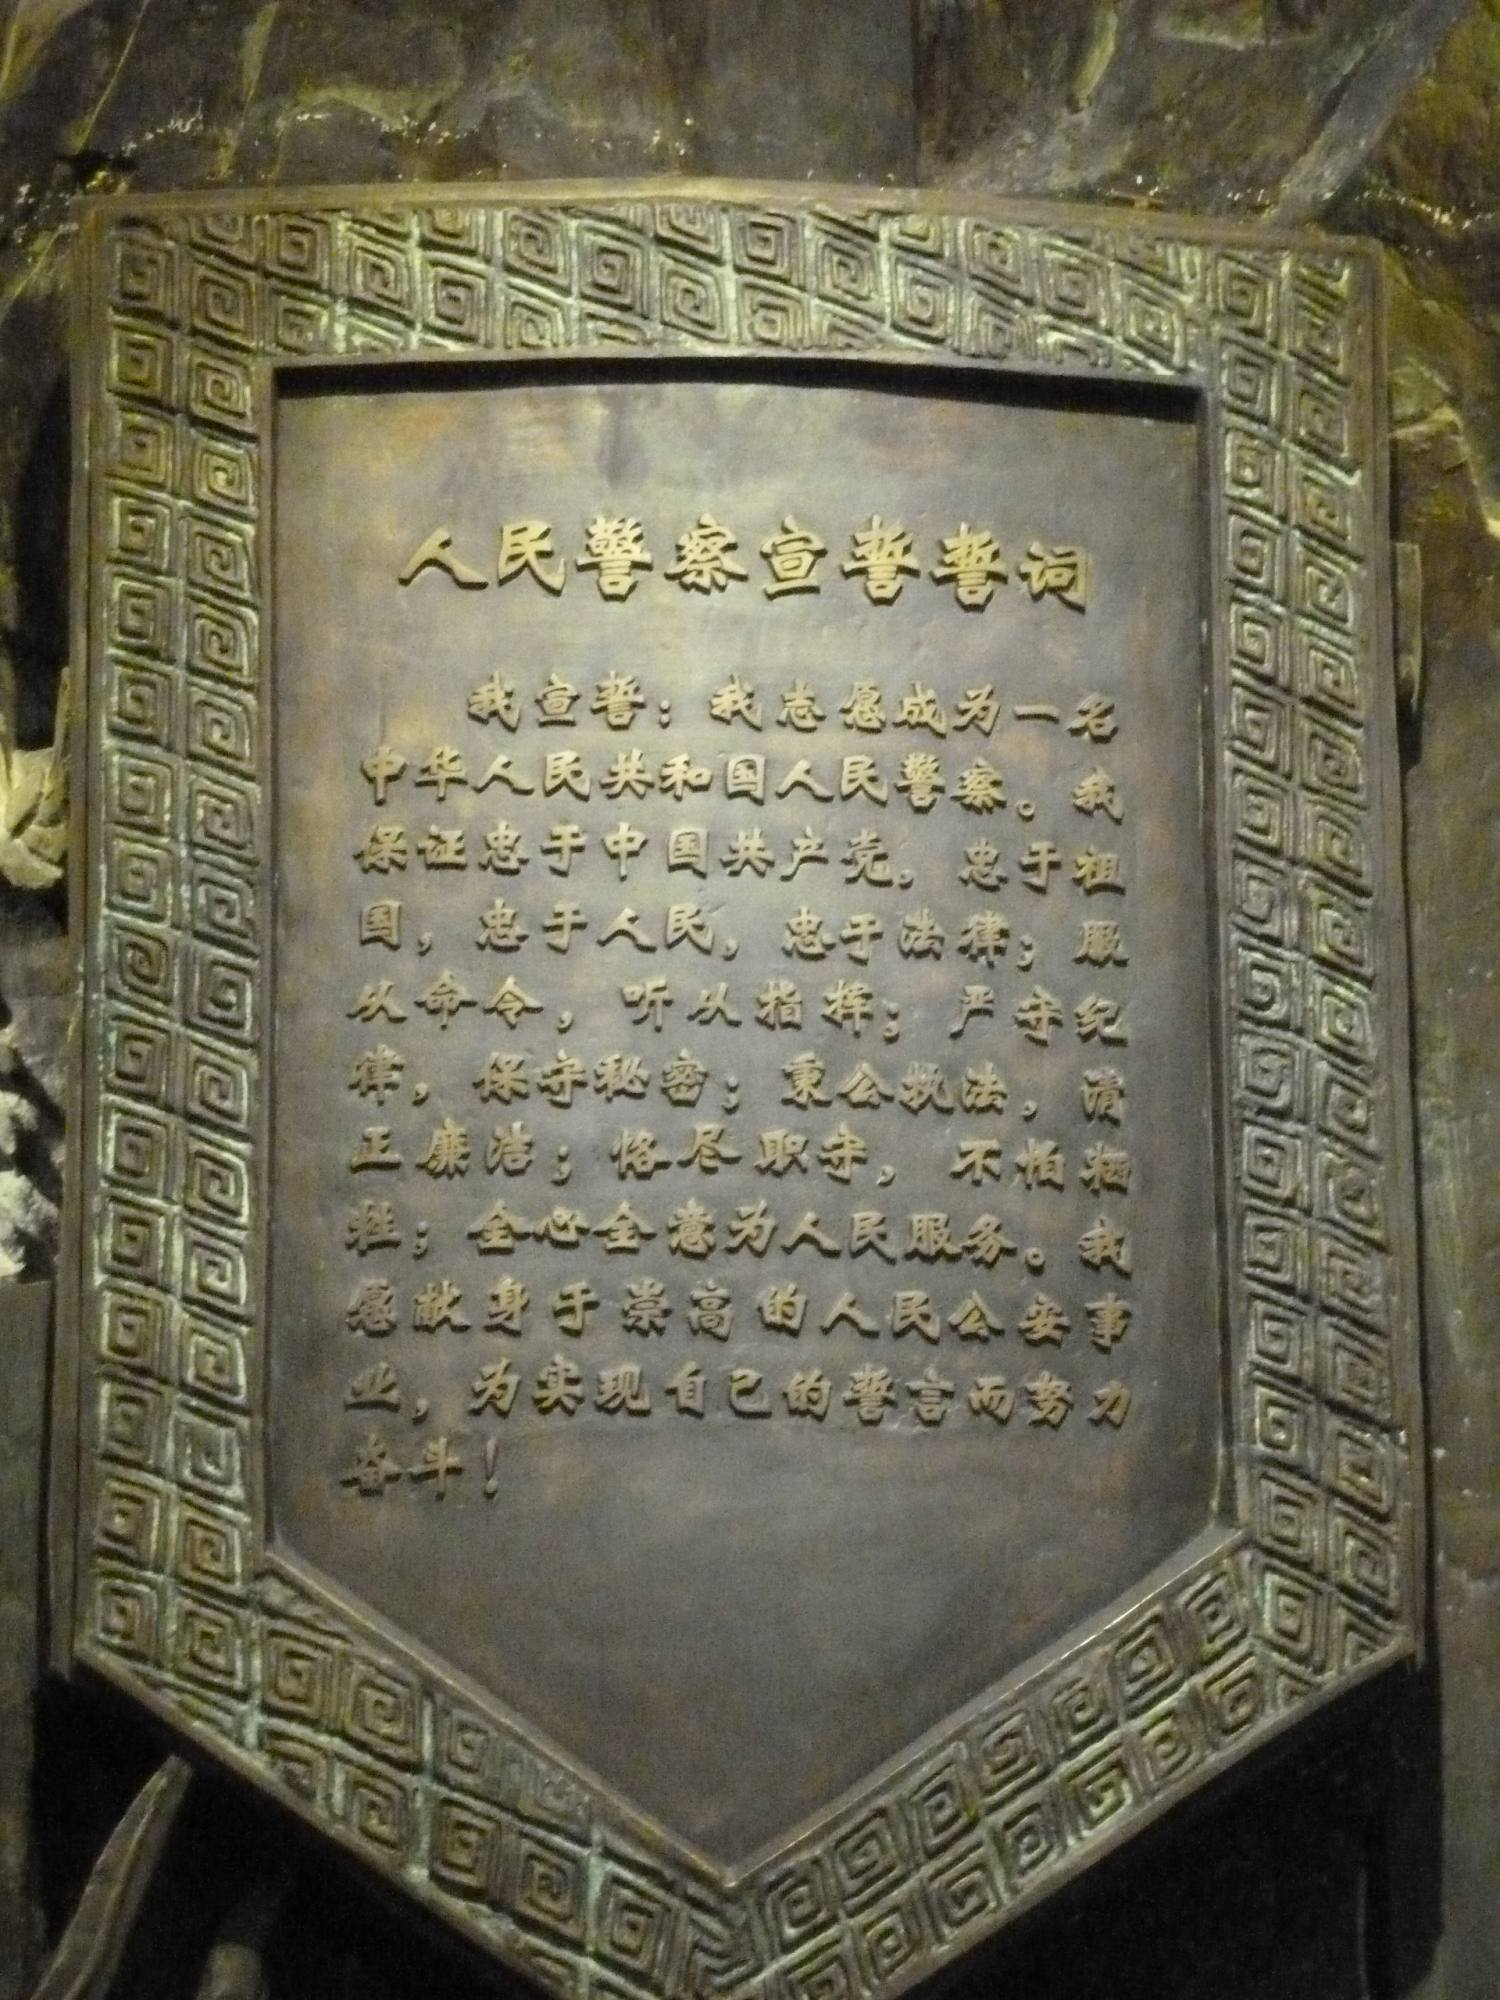 人民警察宣誓誓词
我宣誓：我志愿成为一名
中华人民共和国人民警察。我
保证忠于中国共产党，忠于祖
国，忠于人民，忠于法律；服
从命令，听从指挥；严守纪
律，保守秘密；秉公执法，清
正廉洁；恪尽职守，不怕牺
牲；全心全意为人民服务。我
愿献身于崇高的人民公安事
业，为实现自己的誓言而努力
奋斗！